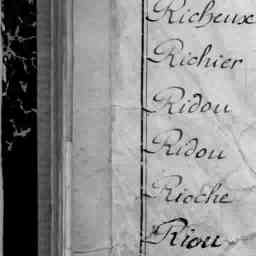 Richeux
Richier
Ridou
Ridou
Rioche
Riou